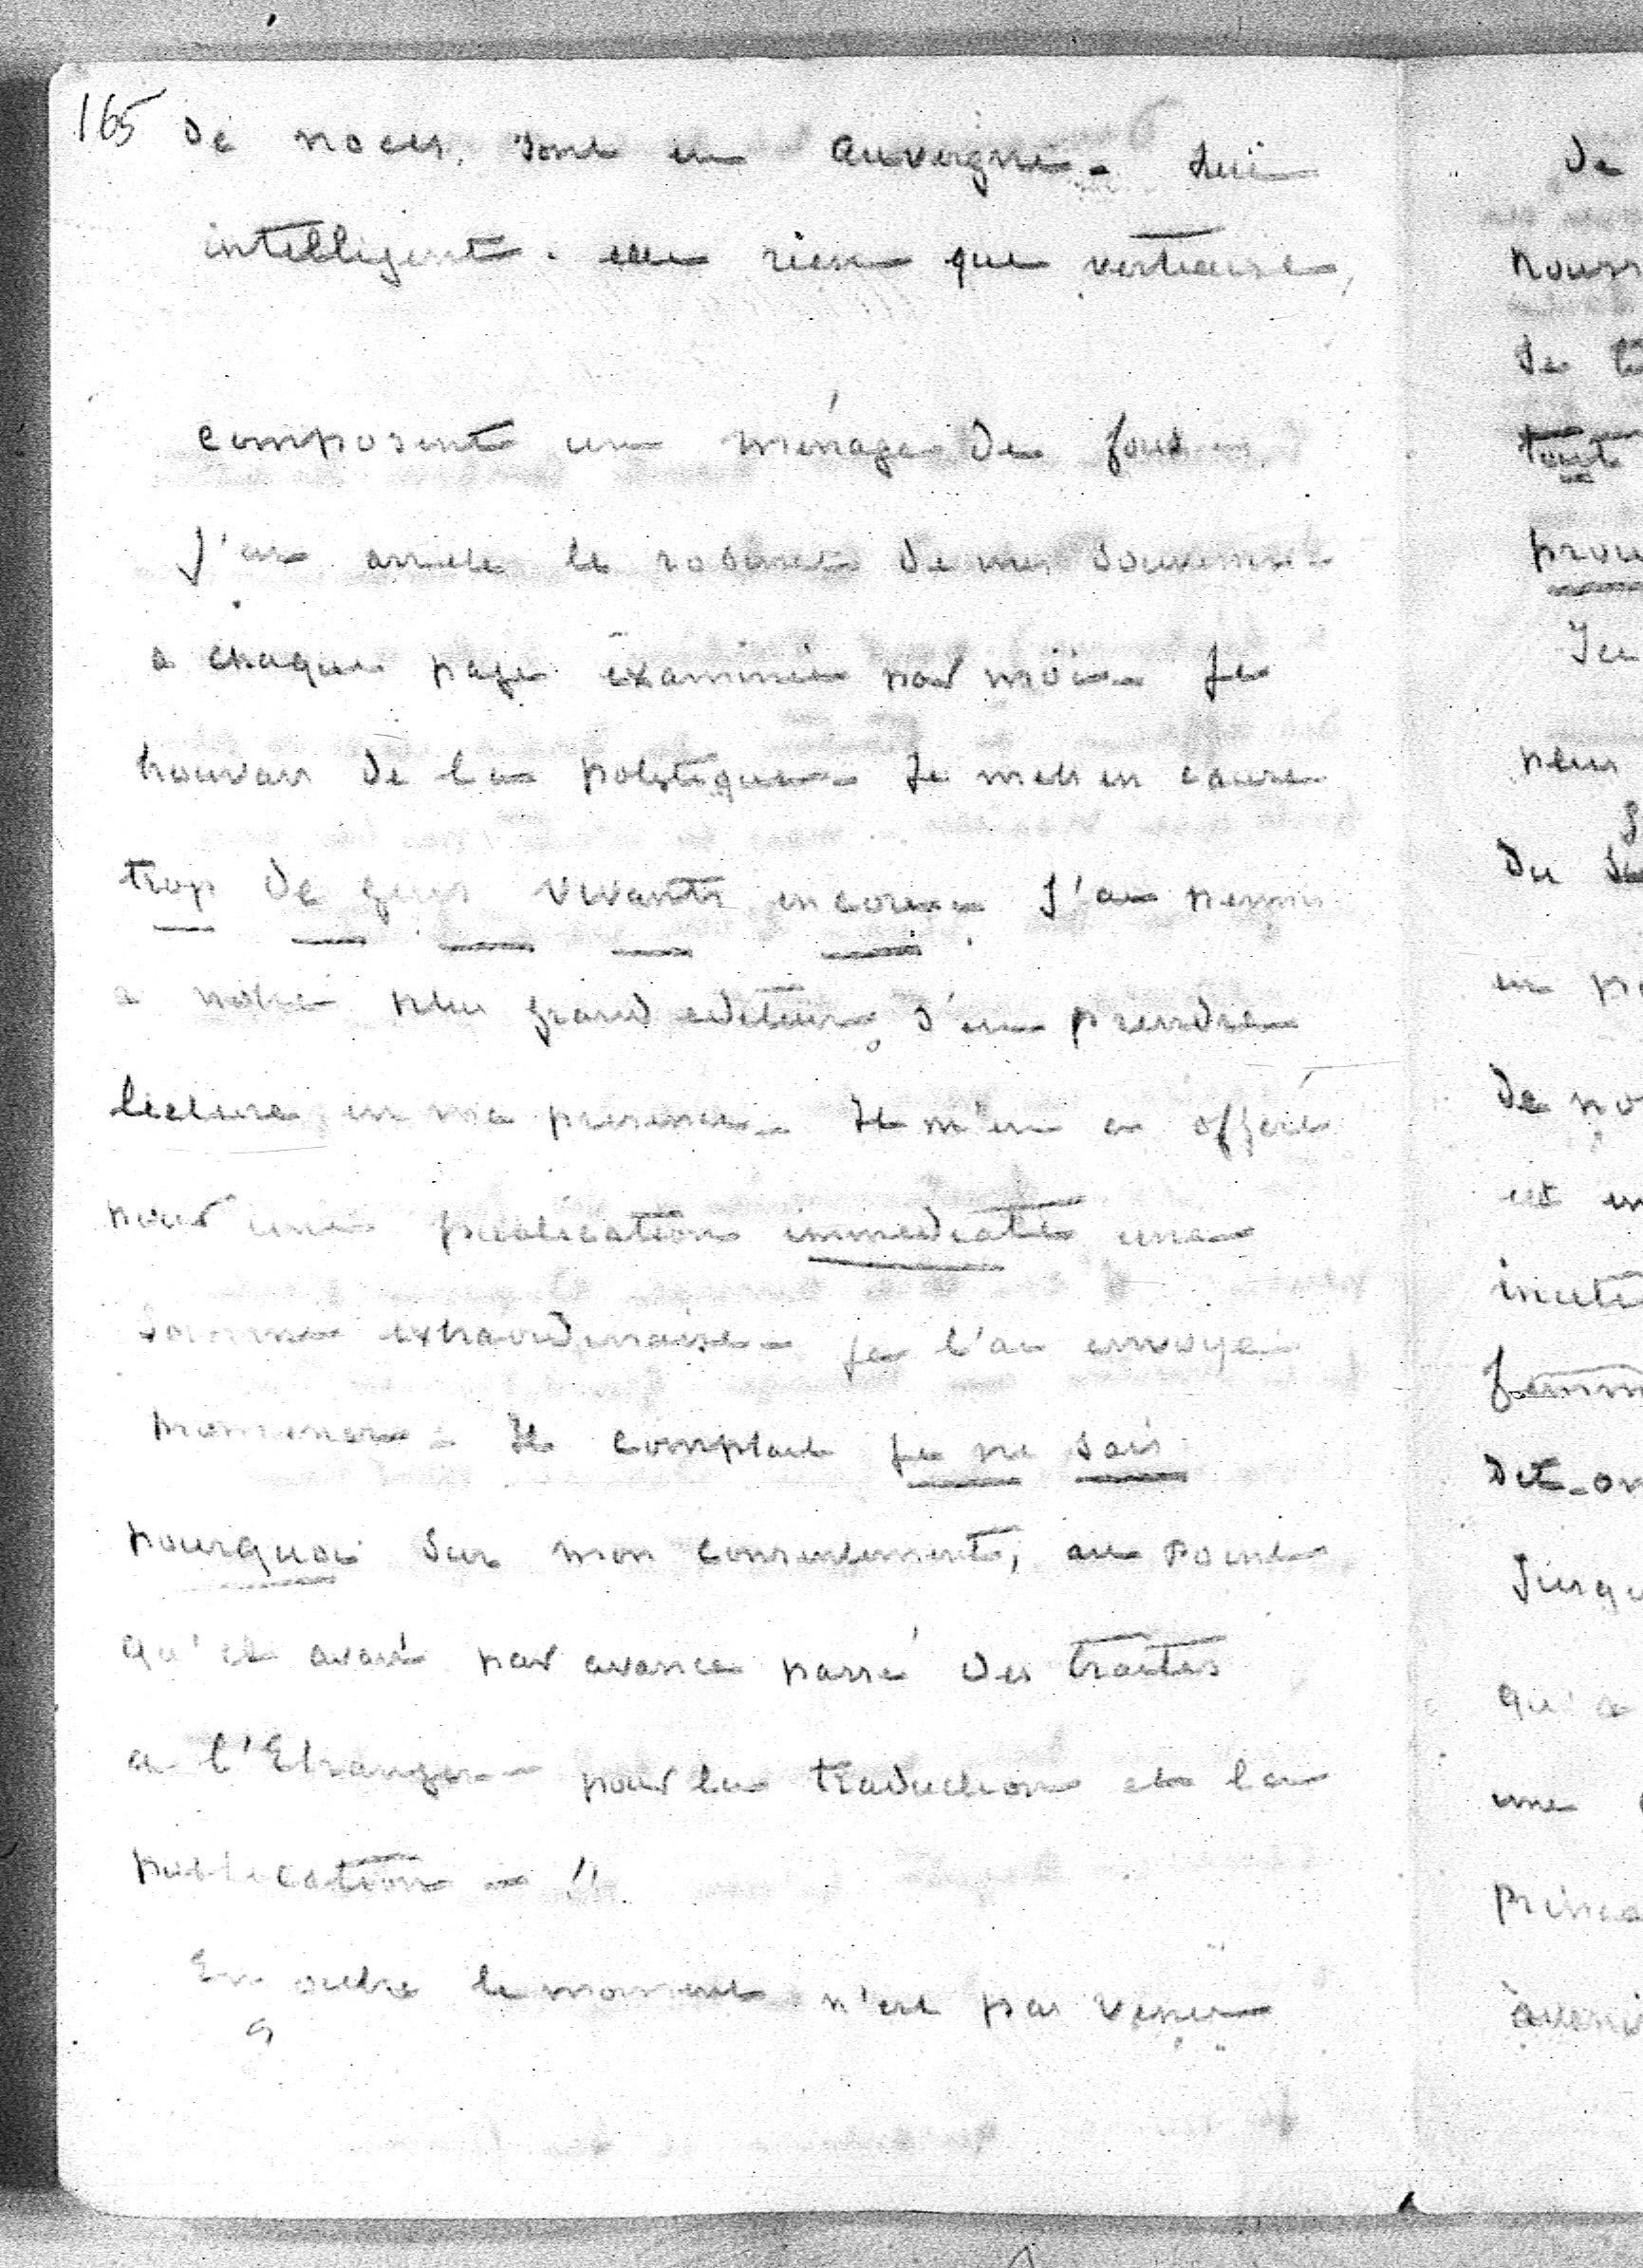 165 de noces, sont en Auvergne - lui
intelligent. elle rien que vertueuse,
composent un ménage de fous
J'ai arrêté le robinet de mes souvenirs
a chaque page examinée par moi - Je
trouvais de la politique - Je mets en cause
trop de gens vivants encore - J'ai permis
a notre plus grand editeur, d'en prendre
lecture en ma presence - Il m'en a offert
pour une publication immediate une
somme extraordinaire - Je l'ai envoyé
promener - Il comptait je ne sais
pourquoi sur mon consentement, au point
qu'il avait par avance passé des traités
a l'Etranger - pour la traduction et la
publication - "
En outre le moment n'est pas venu
de
nous
de
tout
prou
Je
plus
du
en
de no
est en
inuti
femm
dit-on
Jusqu
qu'a
une
Prince
avenir